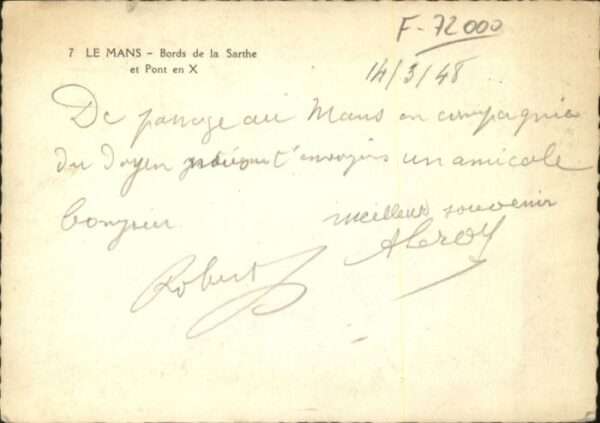 F-72000
7 LE MANS – Bords de la Sarthe
et Pont en X
14/3/48
De passage au Mans en compagnie
du doyen nous t'envoyons un amicale
bonjour
meilleur souvenir
ALeroy
Robert